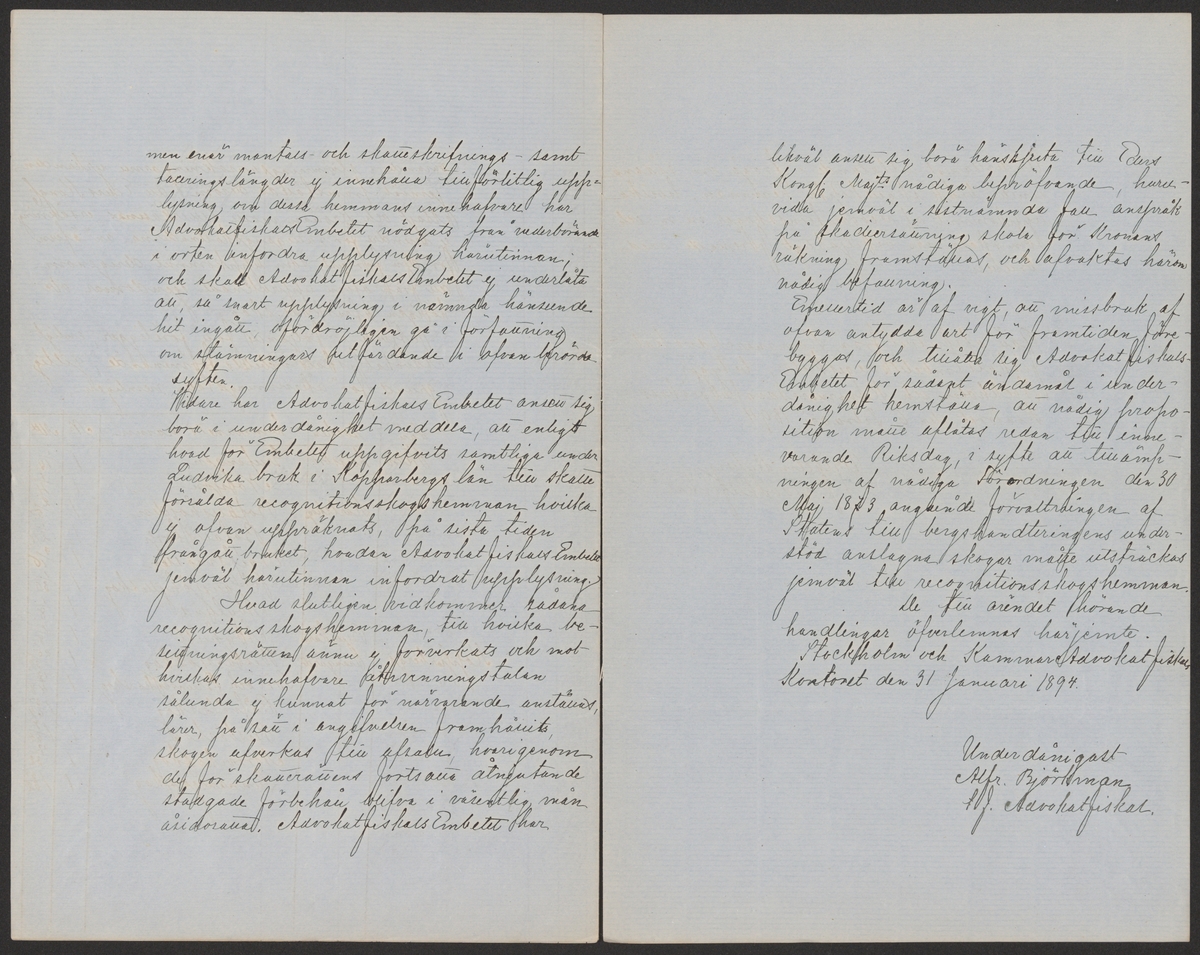 men enär mantals- och skatteskrifnings- samt
taxeringslängder ej innehålla tillförlitlig upp-
lysning om dessa hemmans innehafvare har
AdvokatfiskalsEmbetet nödgats från vederbörande
i orten infordra upplysning härutinnan;
och skall AdvokatfiskalsEmbetet ej underlåta
att, så snart upplysning i nämnda hänseende
hit ingått, ofördröjligen gå i författning
om stämningars utfärdande i ofvan berörda
syften.
Vidare har AdvokatfiskalsEmbetet ansett sig
böra i underdånighet meddela, att enligt
hvad för Embetet uppgifvits samtliga under
Ludvika bruk i Kopparbergs län till skatte
försålda recognitionsskogshemman hvilka
ej ofvan uppräknats, på sista tiden
frångått bruket, hvadan AdvokatfiskalsEmbetet
jemväl härutinnan infordrat upplysning.
Hvad slutligen vidkommer sådana
recognitionsskogshemman, till hvilka be-
sittningsrätten ännu ej förverkats och mot
hvilkas innehafvare återvinningstalan
sålunda ej kunnat för närvarande anställas,
lärer, på sätt i angifvelsen framhållits,
skogen afverkas till afsalu, hvarigenom
de för skatterättens fortsatta åtnjutande
stadgade förbehåll blifva i väsentlig mån
åsidosatta. AdvokatfiskalsEmbetet har
likväl ansett sig böra hänskjuta till Eders
Kongl. Maj:ts nådiga bepröfvande, huru-
vida jemväl i sistnämnda fall anspråk
på skadeersättning skola för Kronans
räkning framställas, och afvaktas härom
nådig befallning.
Emellertid är af vigt, att missbruk af
ofvan antydda art för framtiden före-
byggas, och tillåter sig Advokatfiskals-
Embetet för sådant ändamål i under-
dånighet hemställa, att nådig propo-
sition måtte aflåtas redan till inne-
varande Riksdag, i syfte att tillämp-
ningen af nådiga Förordningen den 30
Maj 1873 angående förvaltningen af
Statens till bergshandteringens under-
stöd anslagna skogar måtte utsträckas
jemväl till recognitionsskogshemman.
De till ärendet hörande
handlingar öfverlemnas härjemte.
Stockholm och KammarAdvokatfiskals
Kontoret den 31 Januari 1894.
Underdånigast
Alfr. Björkman
Advokatfiskal.